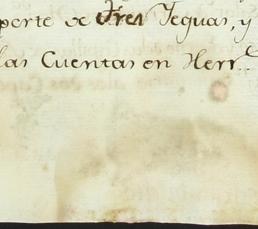 porte de Tres Yeguas, y
las Cuentas en Herr.